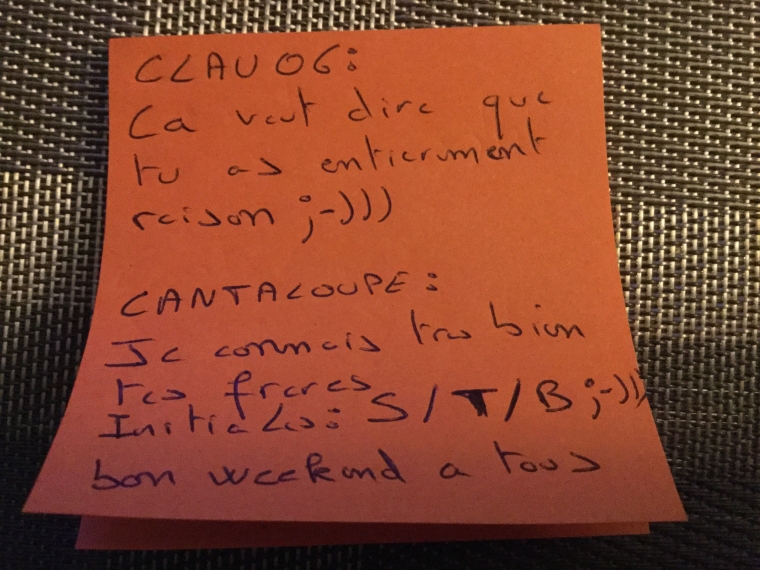 CLAUO6:
Ca veut dire que
tu as entierement
raison ;-)))
CANTALOUPE:
Je connais tres bien
tes freres
Initiales: S/T/B ;-)))
bon weekend a tous